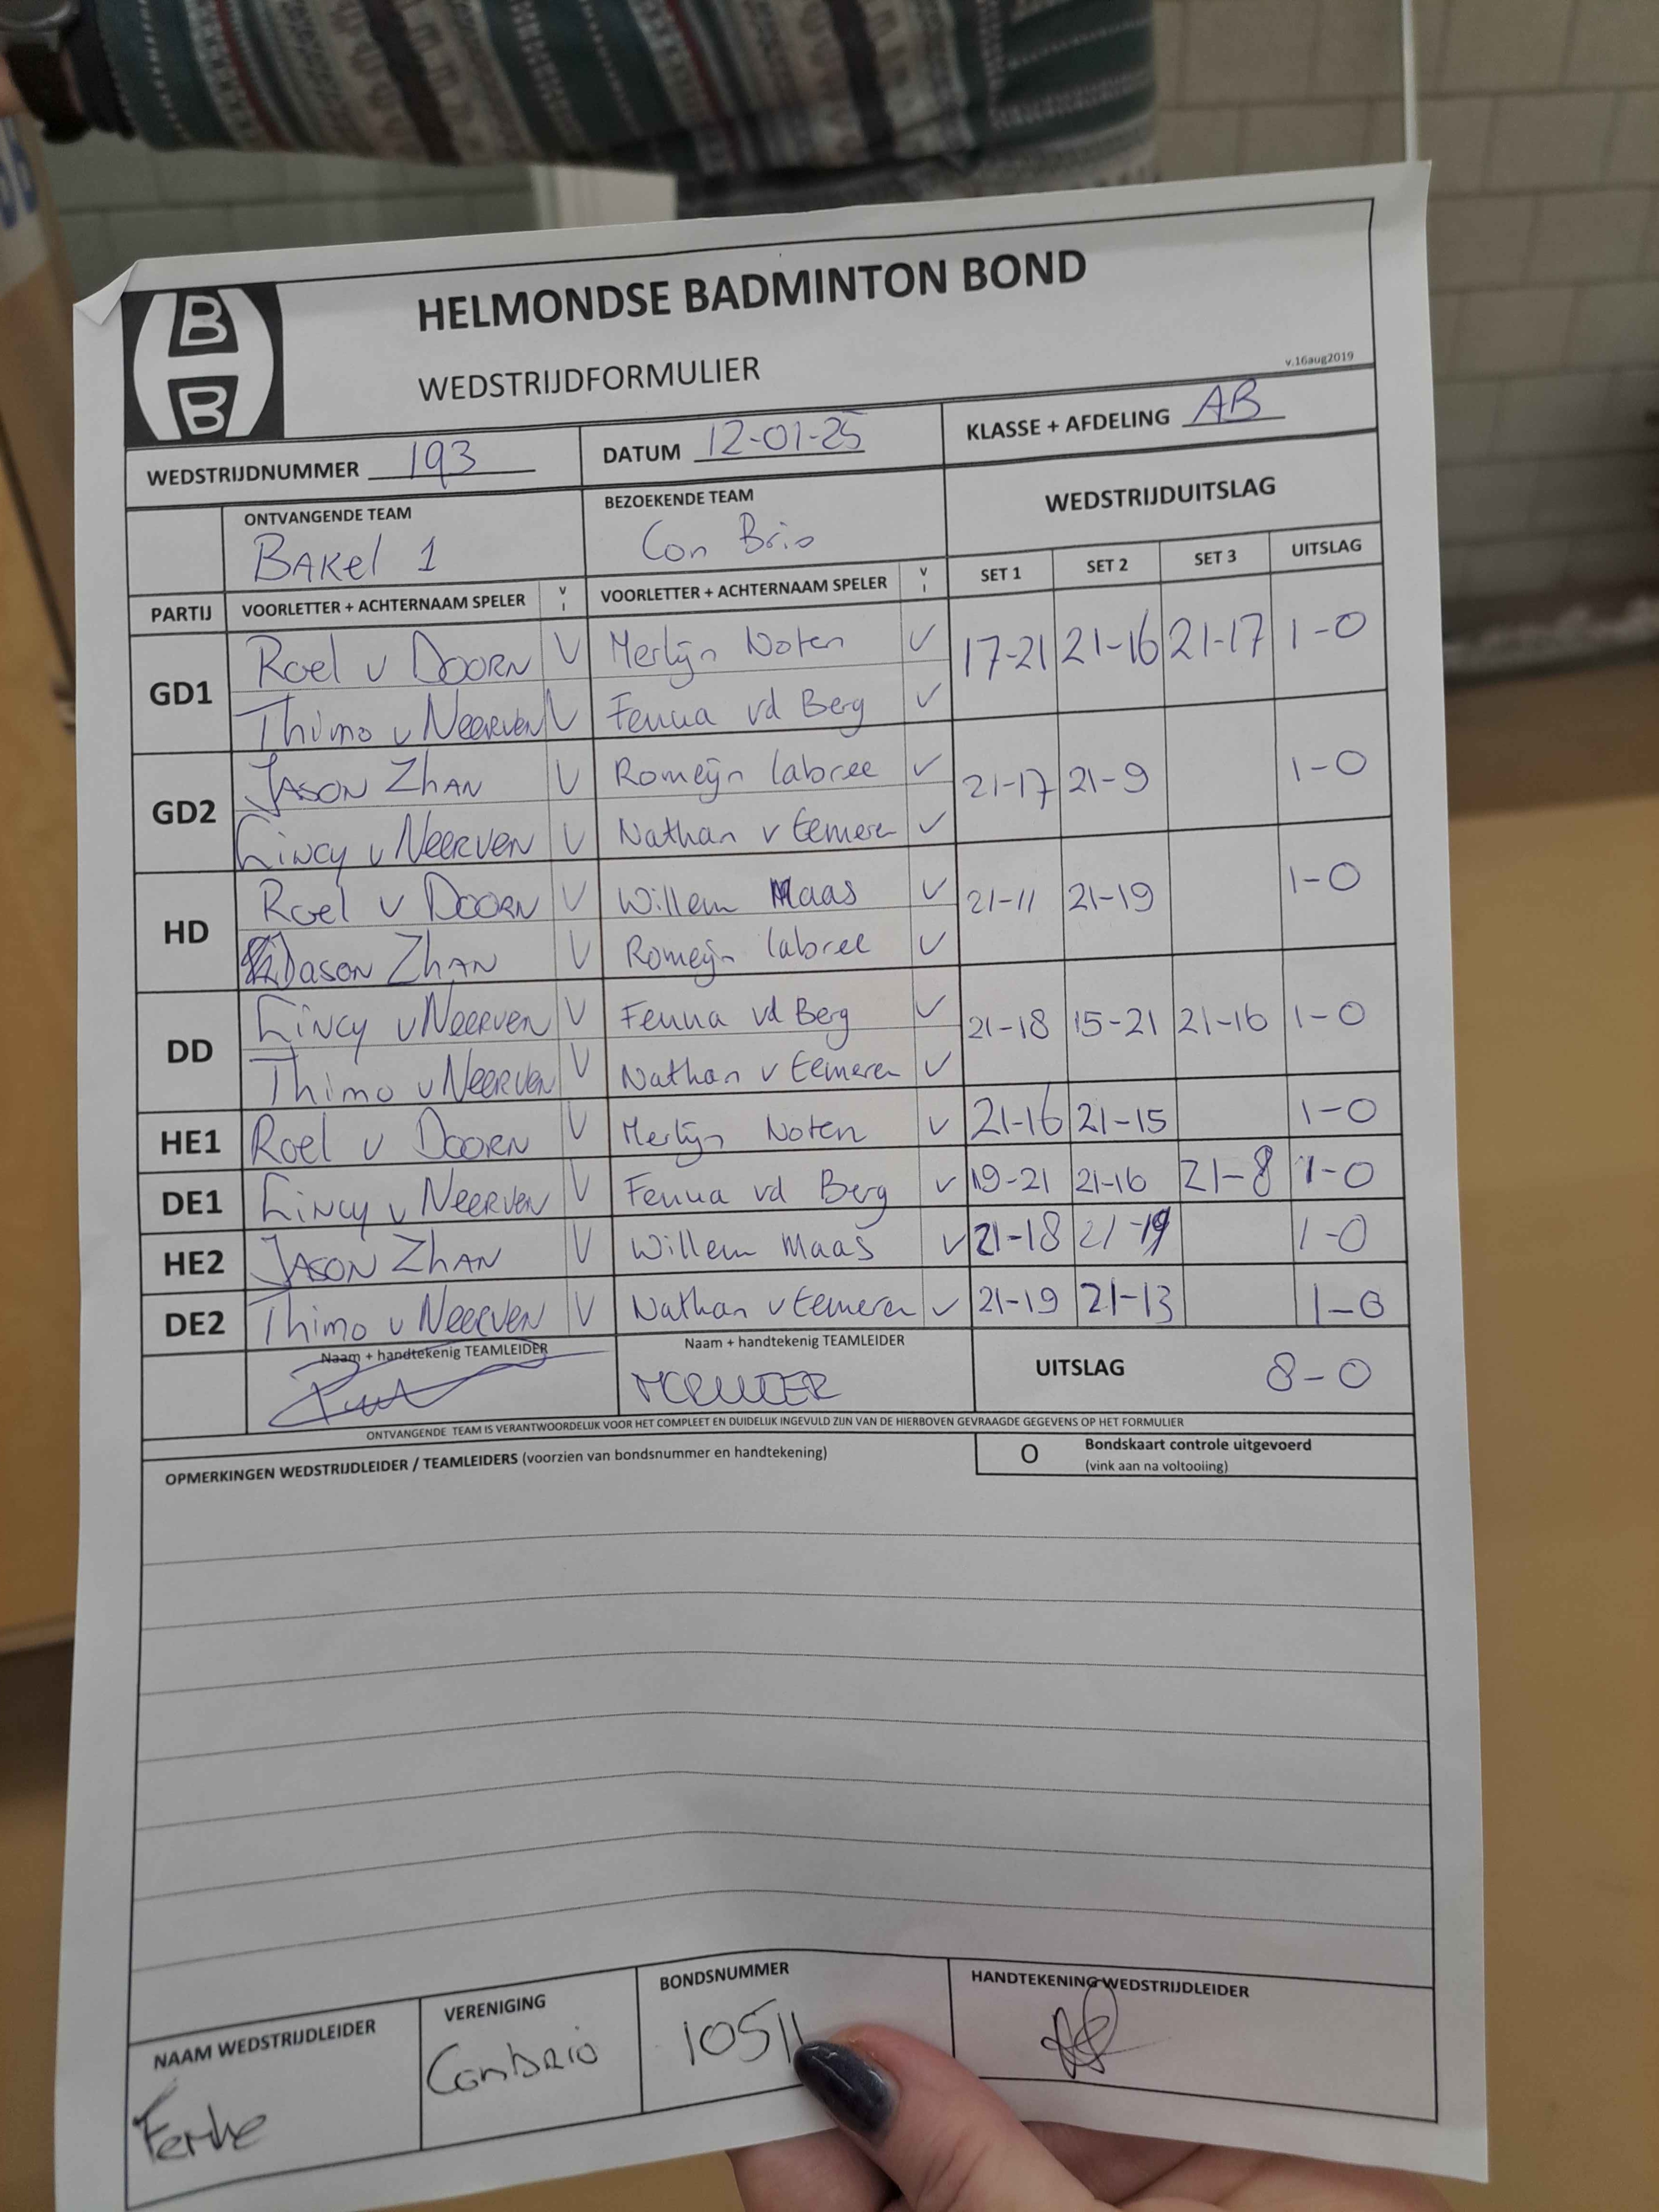 HELMONDSE BADMINTON BOND
WEDSTRIJDFORMULIER
v.16aug2019
WEDSTRIJDNUMMER 193 DATUM 12-01-25 KLASSE + AFDELING AB
ONTVANGENDE TEAM BEZOEKENDE TEAM WEDSTRIJDUITSLAG
BAKel 1 Con Brio
PARTIJ VOORLETTER + ACHTERNAAM SPELER V I VOORLETTER + ACHTERNAAM SPELER V I SET 1 SET 2 SET 3 UITSLAG
GD1 Roel v DOORN V Merlijn Noten V 17-21 21-16 21-17 1-0
Thimo v NEERVEN V Fenna vd Berg V
GD2 JASON ZHAN V Romeijn Labree V 21-17 21-9 1-0
LINCY v NEERVEN V Nathan v Eemeren V
HD Roel v DOORN V Willem Maas V 21-11 21-19 1-0
JASON ZHAN V Romeijn Labree V
DD LINCY v NEERVEN V Fenna vd Berg V 21-18 15-21 21-16 1-0
Thimo v NEERVEN V Nathan v Eemeren V
HE1 Roel v DOORN V Merlijn Noten V 21-16 21-15 1-0
DE1 LINCY v NEERVEN V Fenna vd Berg V 19-21 21-16 21-8 1-0
HE2 JASON ZHAN V Willem Maas V 21-18 21-19 1-0
DE2 Thimo v NEERVEN V Nathan v Eemeren V 21-19 21-13 1-0
Naam + handtekenig TEAMLEIDER Naam + handtekenig TEAMLEIDER UITSLAG 8-0
ONTVANGENDE TEAM IS VERANTWOORDELIJK VOOR HET COMPLEET EN DUIDELIJK INGEVULD ZIJN VAN DE HIERBOVEN GEVRAAGDE GEGEVENS OP HET FORMULIER
OPMERKINGEN WEDSTRIJDLEIDER / TEAMLEIDERS (voorzien van bondsnummer en handtekening) O Bondskaart controle uitgevoerd
(vink aan na voltooiing)
NAAM WEDSTRIJDLEIDER VERENIGING BONDSNUMMER HANDTEKENING WEDSTRIJDLEIDER
Femke Conbrio 10511